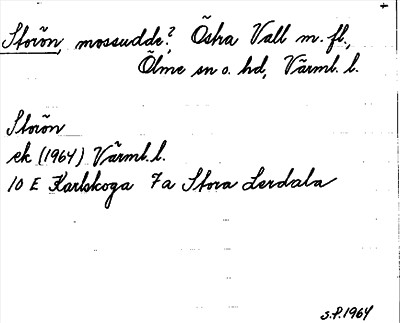 Storön, mossudde?, Östra Vall m. fl.,
Ölme sn o. hd, Värml. l.
Storön
ek (1964) Värml. l.
10 E Karlskoga 7a Stora Lerdala
S.P. 1964